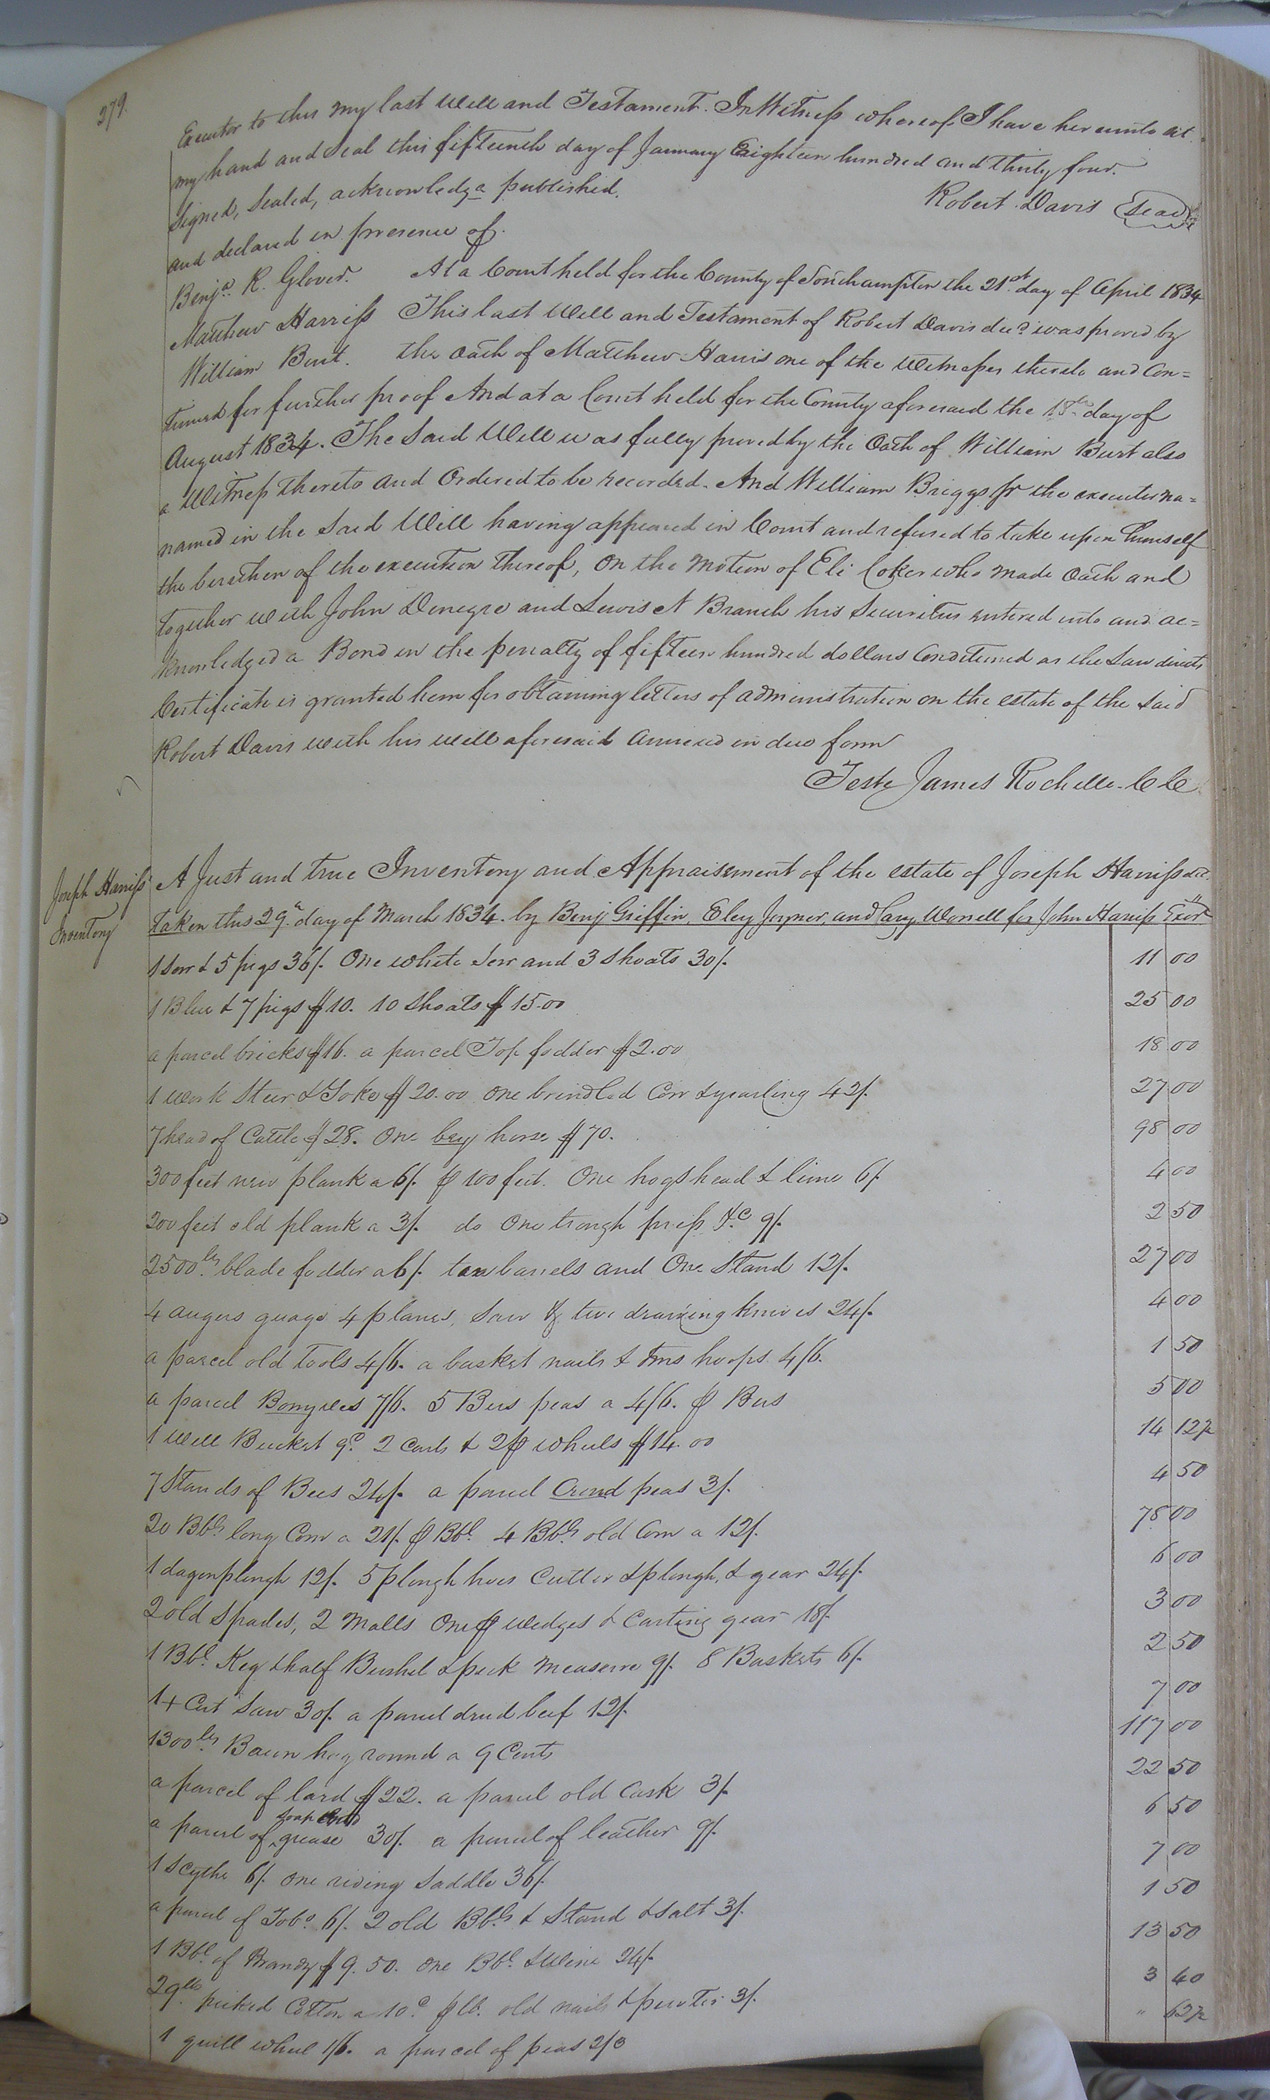 279.
Executor to this my last Will and Testament. In Witness whereof I have hereunto set
my hand and seal this fifteenth day of January Eighteen hundred and thirty four.
Signed, Sealed, acknowledg.d published. Robert Davis (Seal)
and declared in presence of.
Benj.a R. Glover. At a Court held for the County of Southampton the 21st day of April 1834
Matthew Harriss This last Will and Testament of Robert Davis dec.d was proved by
William Burt. the oath of Matthew Harris one of the Witnesses thereto and Con=
tinued for further proof And at a Court held for the County aforesaid the 18th day of
August 1834. The Said Will was fully proved by the Oath of William Burt also
a Witness thereto and Ordered to be recorded. And William Briggs Jr the executor na=
named in the Said Will having appeared in Court and refused to take upon himself
the burethen of the execution thereof, on the motion of Eli Coker who made Oath and
together with John Denegre and Lewis N Branch his Securities entered into and ac=
knowledged a Bond in the penalty of fifteen hundred dollars Conditioned as the Law directs
Certificate is granted him for obtaining letters of administration on the estate of the Said
Robert Davis with his will aforesaid annexed in due form
Teste James Rochelle. C C
Joseph Harriss'
Inventory
A Just and true Inventory and Appraisement of the estate of Joseph Harriss dec.
taken this 29th day of March 1834 by Benj Griffin, Eley Joyner, and Cary Worrell for John Harriss Exor
1 Sow & 5 pigs 36/. One white Sow and 3 Shoats 30/. 11 00
1 Blue & 7 pigs $10. 10 Shoats $15.00 25 00
a parcel bricks $16. a parcel Top fodder $2.00 18 00
1 Work Steer & Yoke $20.00 One brindled Cow & yearling 42/. 27 00
7 head of Cattle $28. One bay horse $70. 98 00
300 feet new plank a 6/. p 100 feet. One hogshead & lime 6/. 4 00
200 feet old plank a 3/. do One trough press &c 9/. 2 50
2500 lbs. blade fodder a 6/. two barrels and One Stand 12/. 27 00
4 augers guage 4 planes, Saw & two drawing knives 24/. 4 00
a parcel old Tools 4/6. a basket nails & hoops 4/6. 1 50
a parcel 7/6. 5 Bus peas a 4/6. p Bus 5 00
1 Well Bucket 9d. 2 Carts & 2 p wheels $14.00 14 12½
7 Stands of Bees 24/. a parcel Crowd peas 3/. 4 50
20 Bbls long Corn a 21/. p Bbl. 4 Bbls old Corn a 12/. 78 00
1 dagon plough 12/. 5 plough hoes Cutter & plough, & gear 24/. 6 00
2 old Spades, 2 Malls One p wedges & Carting gear 18/. 3 00
1 Bbl. Keg & half Bushel & peck measure 9/. 8 Baskets 6/. 2 50
1 + Cut Saw 30/. a parcel dried beef 12/. 7 00
1300 lbs. Bacon hog round a 9 Cents 117 00
a parcel of lard $22. a parcel old Cask 3/. 22 50
a parcel of ^ soap and grease 30/. a parcel of leather 9/. 6 50
1 Scythe 6/. One riding Saddle 36/. 7 00
a parcel of Tobo. 6/. 2 old Bbls & Stand & Salt 3/. 1 50
1 Bbl. of Brandy $9.50. One Bbl. & Wine 24/. 13 50
29 lbs. picked Cotton a 10c p lb. old nails & pewter 3/. 3 40
1 quill wheel 1/6. a parcel of peas 2/3 " 62½